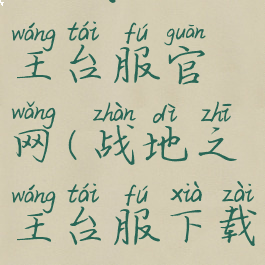 wáng tái fú guān
王台服官
wǎng zhàn dì zhī
网(战地之
wáng tái fú xià zài
王台服下载